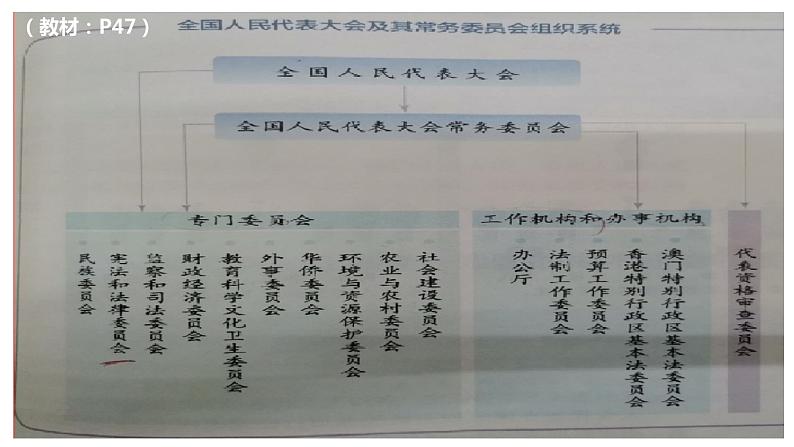 （教材：P47）
全国人民代表大会及其常务委员会组织系统
全国人民代表大会
全国人民代表大会常务委员会
专门委员会
民族委员会
宪法和法律委员会
监察和司法委员会
财政经济委员会
教育科学文化卫生委员会
外事委员会
华侨委员会
环境与资源保护委员会
农业与农村委员会
社会建设委员会
工作机构和办事机构
办公厅
法制工作委员会
预算工作委员会
香港特别行政区基本法委员会
澳门特别行政区基本法委员会
代表资格审查委员会